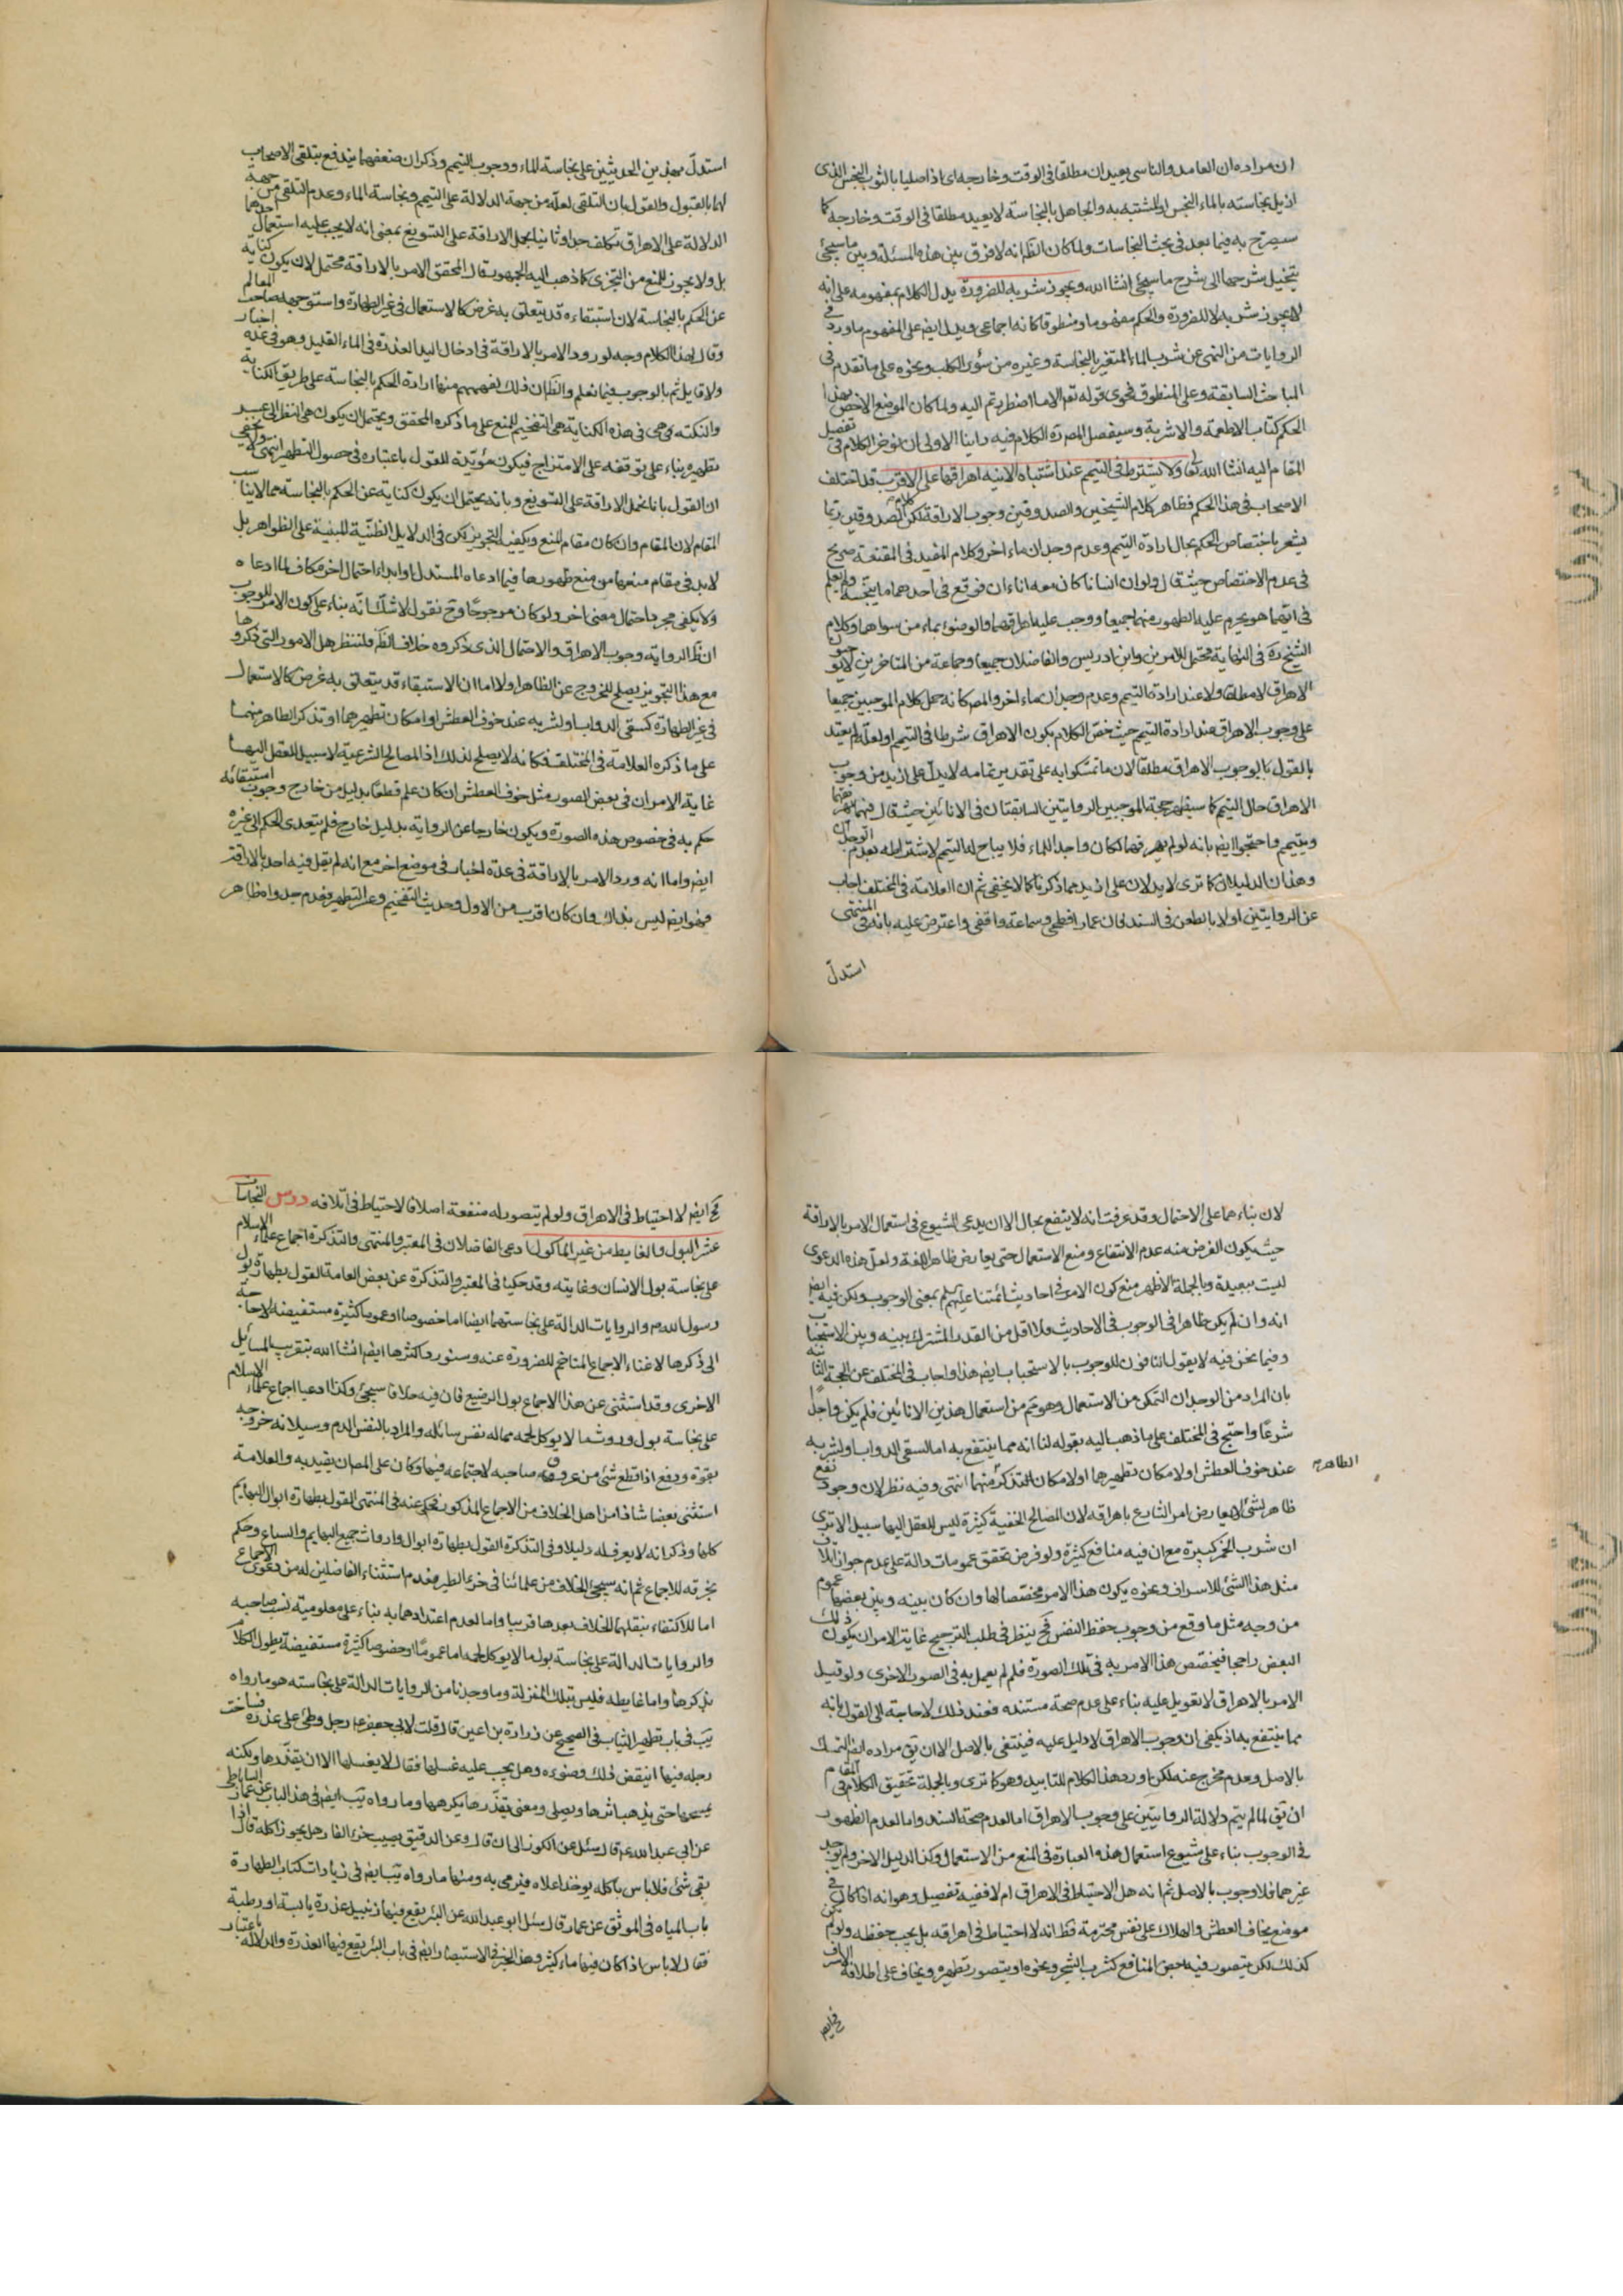 ان مراده ان العامد والناسي يعيدان مطلقا في الوقت وخارجه اي اذا صليا بالثوب النجس الذي
ازيل نجاسته بالماء النجس او المشتبه به والجاهل بالنجاسة لا يعيد مطلقا في الوقت وخارجه كما
سيصرح به فيما بعد في بحث النجاسات ولما كان الظ انه لا فرق بين هذه المسئلة وبين ما سيجئ
شرحها الى شرح ما سيجئ انشا الله ويجوز شربه للضرورة يدل الكلام بمفهومه على انه
لا يجوز شربه لا للضرورة والحكم مفهوما ومنطوقا كانه اجماعي ويدل ايض على المفهوم ما ورد في
الروايات من النهي عن شرب الماء المتغير بالنجاسة وغيره من سؤر الكلب ونحوه على ما تقدم في
المباحث السابقة وعلى المنطوق فحوى قوله تع الا ما اضطررتم اليه ولما كان الموضع الاخص بهذا
الحكم كتاب الاطعمة والاشربة وسيفصل المص ره الكلام فيه راينا الاولى ان نؤخر الكلام في تفصيل
المقام اليه انشا الله تع ولا يشترط في التيمم عند اشتباه الانية اهراقها على الاقرب قد اختلف
الاصحاب في هذا الحكم فظاهر كلام الشيخين والصدوقين وجوب الاراقة لكن كلام الصدوقين ربما
يشعر باختصاص الحكم بحال ارادة التيمم وعدم وجدان ماء اخر وكلام المفيد في المقنعة صريح
في عدم الاختصاص حيث قال ولو ان انسانا كان معه اناءان فوقع في احدهما ما ينجسه ولم يعلم
في ايهما هو يحرم عليه الطهور منهما جميعا ووجب عليه اهراقهما والوضوء بماء من سواهما وكلام
الشيخ ره في النهاية محتمل للامرين وابن ادريس والفاضلان جميعا وجماعة من المتاخرين لا يوجبون
الاهراق لا مطلقا ولا عند ارادة التيمم وعدم وجدان ماء اخر والمص كانه حمل كلام الموجبين جميعا
على وجوب الاهراق عند ارادة التيمم حيث خص الكلام بكون الاهراق شرطا في التيمم او لعله لم يعتد
بالقول بالوجوب الاهراق مطلقا لان ما تمسكوا به على تقدير تمامه لا يدل على ازيد من وجوب
الاهراق حال التيمم كما سيظهر حجة الموجبين الروايتين السابقتان في الانائين حيث قال فيهما يهريقهما
ويتيمم واحتجوا ايض بانه لو لم يهرقهما لكان واجد الماء فلا يباح له التيمم لاشتراطه بعدم الوجدان
وهذان الدليلان كما ترى لا يدلان على ازيد مما ذكرنا كما لا يخفى ثم ان العلامة في المختلف اجاب
عن الروايتين اولا بالطعن في السند فان عمارا فطحي وسماعة واقفي واعترض عليه بانه في المنتهى
استدل
استدل بهذين الحديثين على نجاسة الماء ووجوب التيمم وذكر ان ضعفهما يندفع بتلقي الاصحاب
لهما بالقبول والقول بان التلقي لعله من جهة الدلالة على التيمم ونجاسة الماء وعدم التلقي من جهة
الدلالة على الاهراق تكلف جدا وثانيا بحمل الاراقة على التسويغ بمعنى انه لا يجب عليه استعمال احدهما
بل ولا يجوز للمنع من التجزي كما ذهب اليه الجمهور وقال المحقق الامر بالاراقة محتمل لان يكون كناية
عن الحكم بالنجاسة لان استبقاءه قد يتعلق به غرض كالاستعمال في غير الطهارة واستوجهه صاحب المعالم
وقال لهذا الكلام وجه لورود الامر بالاراقة في ادخال اليد القذرة في الماء القليل وهو في عدة اخبار
ولا قايل ثم بالوجوب فيما نعلم والظ ان ذلك لفهمهم منها ارادة الحكم بالنجاسة على طريق الكناية
والنكتة هي في هذه الكناية هي التفخيم للمنع على ما ذكره المحقق ويحتمل ان يكون هي النظر الى عسر
تطهيره بناء على توقفه على الامتزاج فيكون مؤيدة للقول باعتباره في حصول التطهير انتهى ولا يخفى
ان القول بانا نحمل الاراقة على التسويغ وبانه يحتمل ان يكون كناية عن الحكم بالنجاسة مما لا يناسب
المقام لان المقام وان كان مقام المنع ويكفيه التجويز لكن في الدلايل الظنية المبنية على الظواهر بل
لا بد في مقام منعها من منع ظهورها فيما ادعاه المستدل او ابداء احتمال اخر مكاف لما ادعاه
ولا يكفي مجرد احتمال معنى اخر ولو كان مرجوحا وح نقول لا شك انه بناء على كون الامر للوجوب
ان ظ الرواية وجوب الاهراق والاحتمال الذي ذكروه خلاف الظ فلننظر هل الامور التي ذكروها
مع هذا التجويز يصلح للخروج عن الظاهر او لا اما ان الاستبقاء قد يتعلق به غرض كالاستعمال
في غير الطهارة كسقي الدواب او لشربه عند خوف العطش او امكان تطهيرهما او تذكر الطاهر منهما
على ما ذكره العلامة في المختلف فكانه لا يصلح لذلك اذ المصالح الشرعية لا سبيل للعقل اليها
غاية الامر ان في بعض الصور مثل خوف العطش ان كان علم قطعا بدليل من خارج وجوب استبقائه
حكم به في خصوص هذه الصورة ويكون خارجا عن الرواية بدليل خارج فلم يتعدى الحكم الى غيره
ايض واما انه ورد الامر بالاراقة في عدة اخبار في موضع اخر مع انه لم يقل فيه احد بالاراقة
فهو ايض ليس بذاك وان كان اقرب من الاول وحديث التفخيم وعسر التطهير فعدم جدواه ظاهر
لان بناءهما على الاحتمال وقد عرفت انه لا ينتفع بحال الا ان يدعى الشيوع في استعمال الامر بالاراقة
حيث يكون الغرض منه عدم الانتفاع ومنع الاستعمال حتى يعارض ظاهر اللغة ولعل هذه الدعوى
ليست ببعيدة وبالجملة الاظهر منع كون الامر في احاديث ائمتنا عليهم السلم بمعنى الوجوب ولكن فيه ايض
انه وان لم يكن ظاهرا في الوجوب في الاحاديث فلا اقل من القدر المشترك بينه وبين الاستحباب
وفيما نحن فيه لا يقول النافون للوجوب بالاستحباب ايض هذا واجاب في المختلف عن الحجة الثانية
بان المراد من الوجدان التمكن من الاستعمال وهو ثم من استعمال هذين الانائين فلم يكن واجدا
شرعا واحتج في المختلف على ما ذهب اليه بقوله لنا انه مما ينتفع به اما لسقي الدواب او لشربه
عند خوف العطش او لامكان تطهيرهما او لامكان التذكر منهما انتهى وفيه نظر لان وجود نفع
الطاهر
ظاهر لشئ لا يعارض امر الشارع باهراقه لان المصالح الخفية كثيرة ليس للعقل اليها سبيل الا ترى
ان شرب الخمر كبيرة مع ان فيه منافع كثيرة ولو فرض تحقق عمومات دالة على عدم جواز اتلاف
مثل هذا الشئ للاسراف ونحوه يكون هذا الامر مخصصا لها وان كان بينه وبين بعضها عموم
من وجه مثل ما وقع من وجوب حفظ النفس فح ينظر في طلب الترجيح غاية الامر ان يكون ذلك
البعض راجحا فيخصص هذا الامر به في تلك الصورة فلم لم يعمل به في الصور الاخرى ولو قيل
الامر بالاهراق لا تعويل عليه بناء على عدم صحة مستنده فعند ذلك لا حاجة الى القول بانه
مما ينتفع به اذ يكفي ان وجوب الاهراق لا دليل عليه فينتفي بالاصل الا ان يق مراده ايض التمسك
بالاصل وعدم مخرج عنه لكن اورد هذا الكلام للتاييد وهو كما ترى وبالجملة تحقيق الكلام في المقام
ان يق لما لم يتم دلالة الروايتين على وجوب الاهراق اما لعدم صحة السند واما لعدم الظهور
في الوجوب بناء على شيوع استعمال هذه العبارة في المنع من الاستعمال وكذا الدليل الاخر ولم يوجد
غيرهما فلا وجوب بالاصل ثم انه هل الاحتياط في الاهراق ام لا ففيه تفصيل وهو انه اذا كان في
موضع يخاف العطش والهلاك على نفس محترمة فظ انه لا احتياط في اهراقه بل يجب حفظه ولو لم يكن
كذلك لكن يتصور فيه بعض المنافع كشرب الشجر ونحوه او يتصور تطهيره ويخاف على اطلاقه الاسراف
فح ايض
فح ايض لا احتياط في الاهراق ولو لم يتصور له منفعة اصلا فالاحتياط في اتلافه درس النجاسات
عشر البول والغايط من غير الماكول ادعى الفاضلان في المعتبر والمنتهى والتذكرة اجماع علماء الاسلام
على نجاسة بول الانسان وغايطه وقد حكيا في المعتبر والتذكرة عن بعض العامة القول بطهارة بول
رسول الله ص والروايات الدالة على نجاستهما ايضا اما خصوصا او عموما كثيرة مستفيضة لا حاجة
الى ذكرها لاغناء الاجماع المتاخم للضرورة عنه وسنورد اكثرها ايض انشا الله بتقريب المسائل
الاخرى وقد استثنى عن هذا الاجماع بول الرضيع فان فيه خلافا سيجئ وكذا ادعيا اجماع علماء الاسلام
على نجاسة بول وروث ما لا يوكل لحمه مما له نفس سائله والمراد بالنفس الدم وسيلانه خروجه
بقوة ودفع اذا قطع شئ من عروق صاحبه لاجتماعه فيها وكان على المص ان يقيد به والعلامة
استثنى بعضا شاذا من اهل الخلاف من الاجماع المذكور فحكى عنه في المنتهى القول بطهارة ابوال البهايم
كلها وذكر انه لا يعرف له دليلا وفي التذكرة القول بطهارة ابوال وارواث جميع البهايم والسباع وحكم
بخرقه للاجماع ثم انه سيجئ الخلاف من علمائنا في خرء الطير فعدم استثناء الفاضلين له من دعوى الاجماع
اما للاكتفاء بنقلهما الخلاف بعدها قريبا واما لعدم اعتدادهما به بناء على معلومية نسب صاحبه
والروايات الدالة على نجاسة بول ما لا يوكل لحمه اما عموما او خصوصا كثيرة مستفيضة يطول الكلام
بذكرها واما غايطه فليس بتلك المنزلة وما وجدنا من الروايات الدالة على نجاسته هو ما رواه
يب في باب تطهير الثياب في الصحيح عن زرارة بن اعين قال قلت لابي جعفر ع رجل وطئ على عذرة فساخت
رجله فيها اينقض ذلك وضوءه وهل يجب عليه غسلها فقال لا يغسلها الا ان يقذرها ولكنه
يمسحها حتى يذهب اثرها ويصلي ومعنى يقذرها يكرهها وما رواه يب ايض في هذا الباب عن عمار الساباطي
عن ابي عبد الله ع قال سئل عن الكوز الى ان قال وعن الدقيق يصيب خرء الفار هل يجوز اكله قال اذا
بقي شئ فلا باس باكله يوخذ اعلاه فيرمى به ومنها ما رواه يب ايض في زيادات كتاب الطهارة
باب المياه في الموثق عن عمار قال سئل ابو عبد الله عن البئر يقع فيها زنبيل عذرة يابسة او رطبة
فقال لا باس اذا كان فيها ماء كثير وهذا الخبر في الاستبصار ايض في باب البئر يقع فيها العذرة والدلالة باعتبار